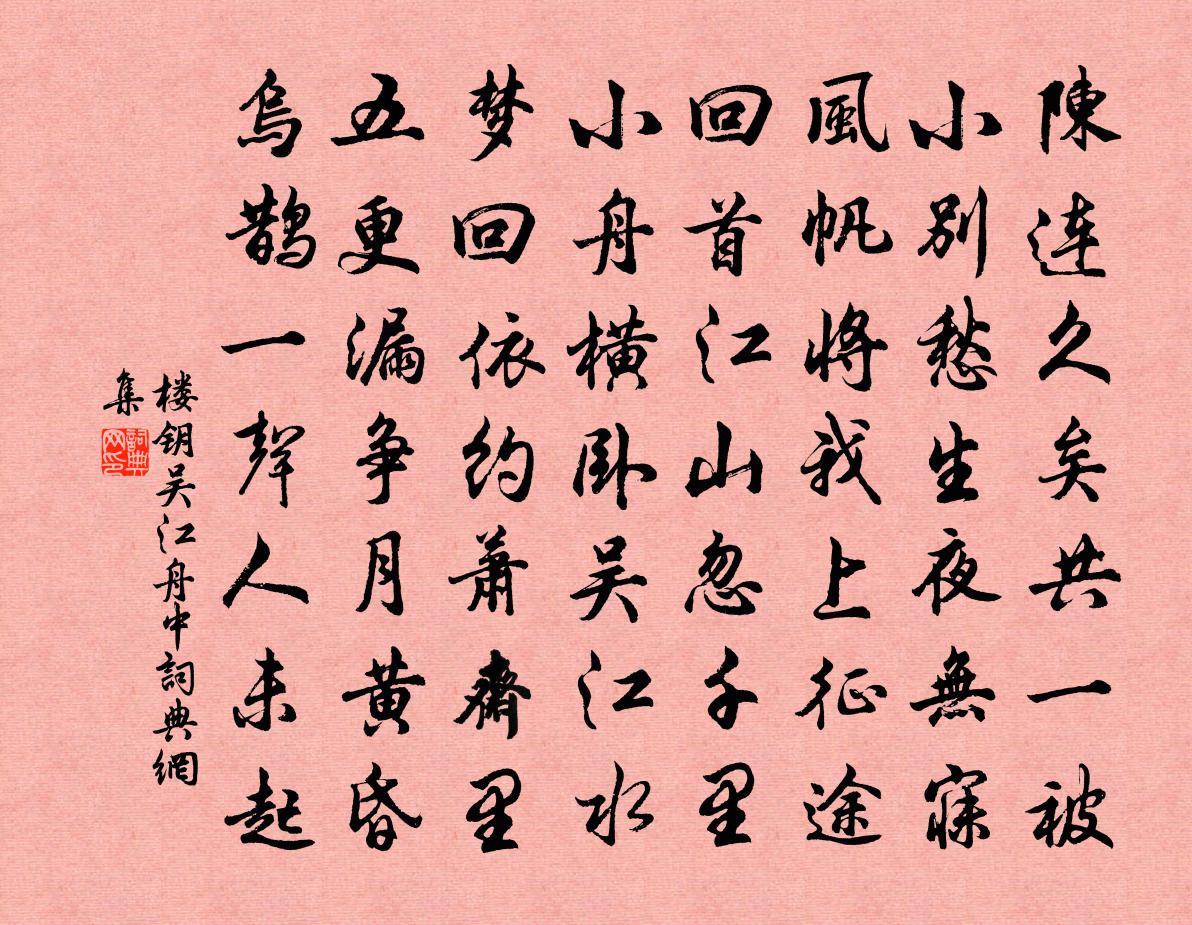 陳连久矣共一被
小别愁生夜無寐
風帆将我上征途
回首江山忽千里
小舟横卧吴江水
梦回依约萧齋里
五更漏争月黄昏
烏鹊一聲人未起
楼钥吴江舟中詞典網
集
詞典
网印